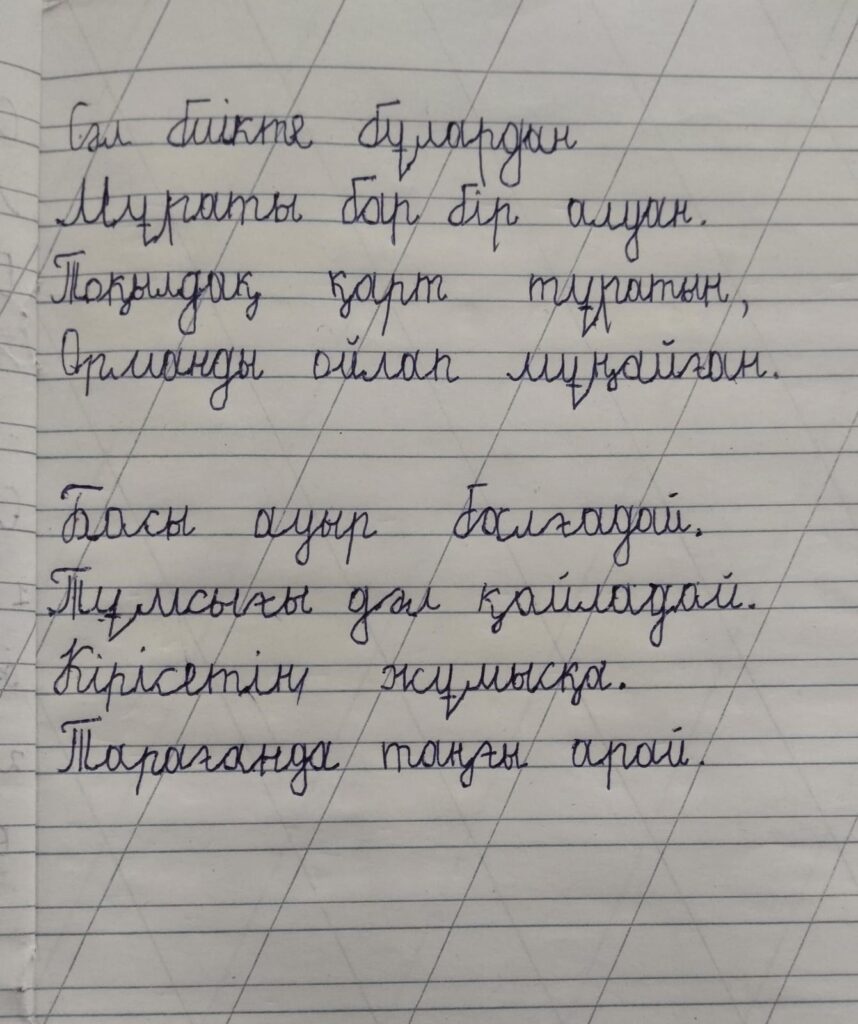 Сәл биікте бұлардан
Мұраты бар бір алуан.
Тоқылдақ қарт тұратын,
Орманды ойлап мұңайған.
Басы ауыр балғадай.
Тұмсығы дәл қайладай.
Кірісетін жұмысқа.
Тарағанда таңғы арай.